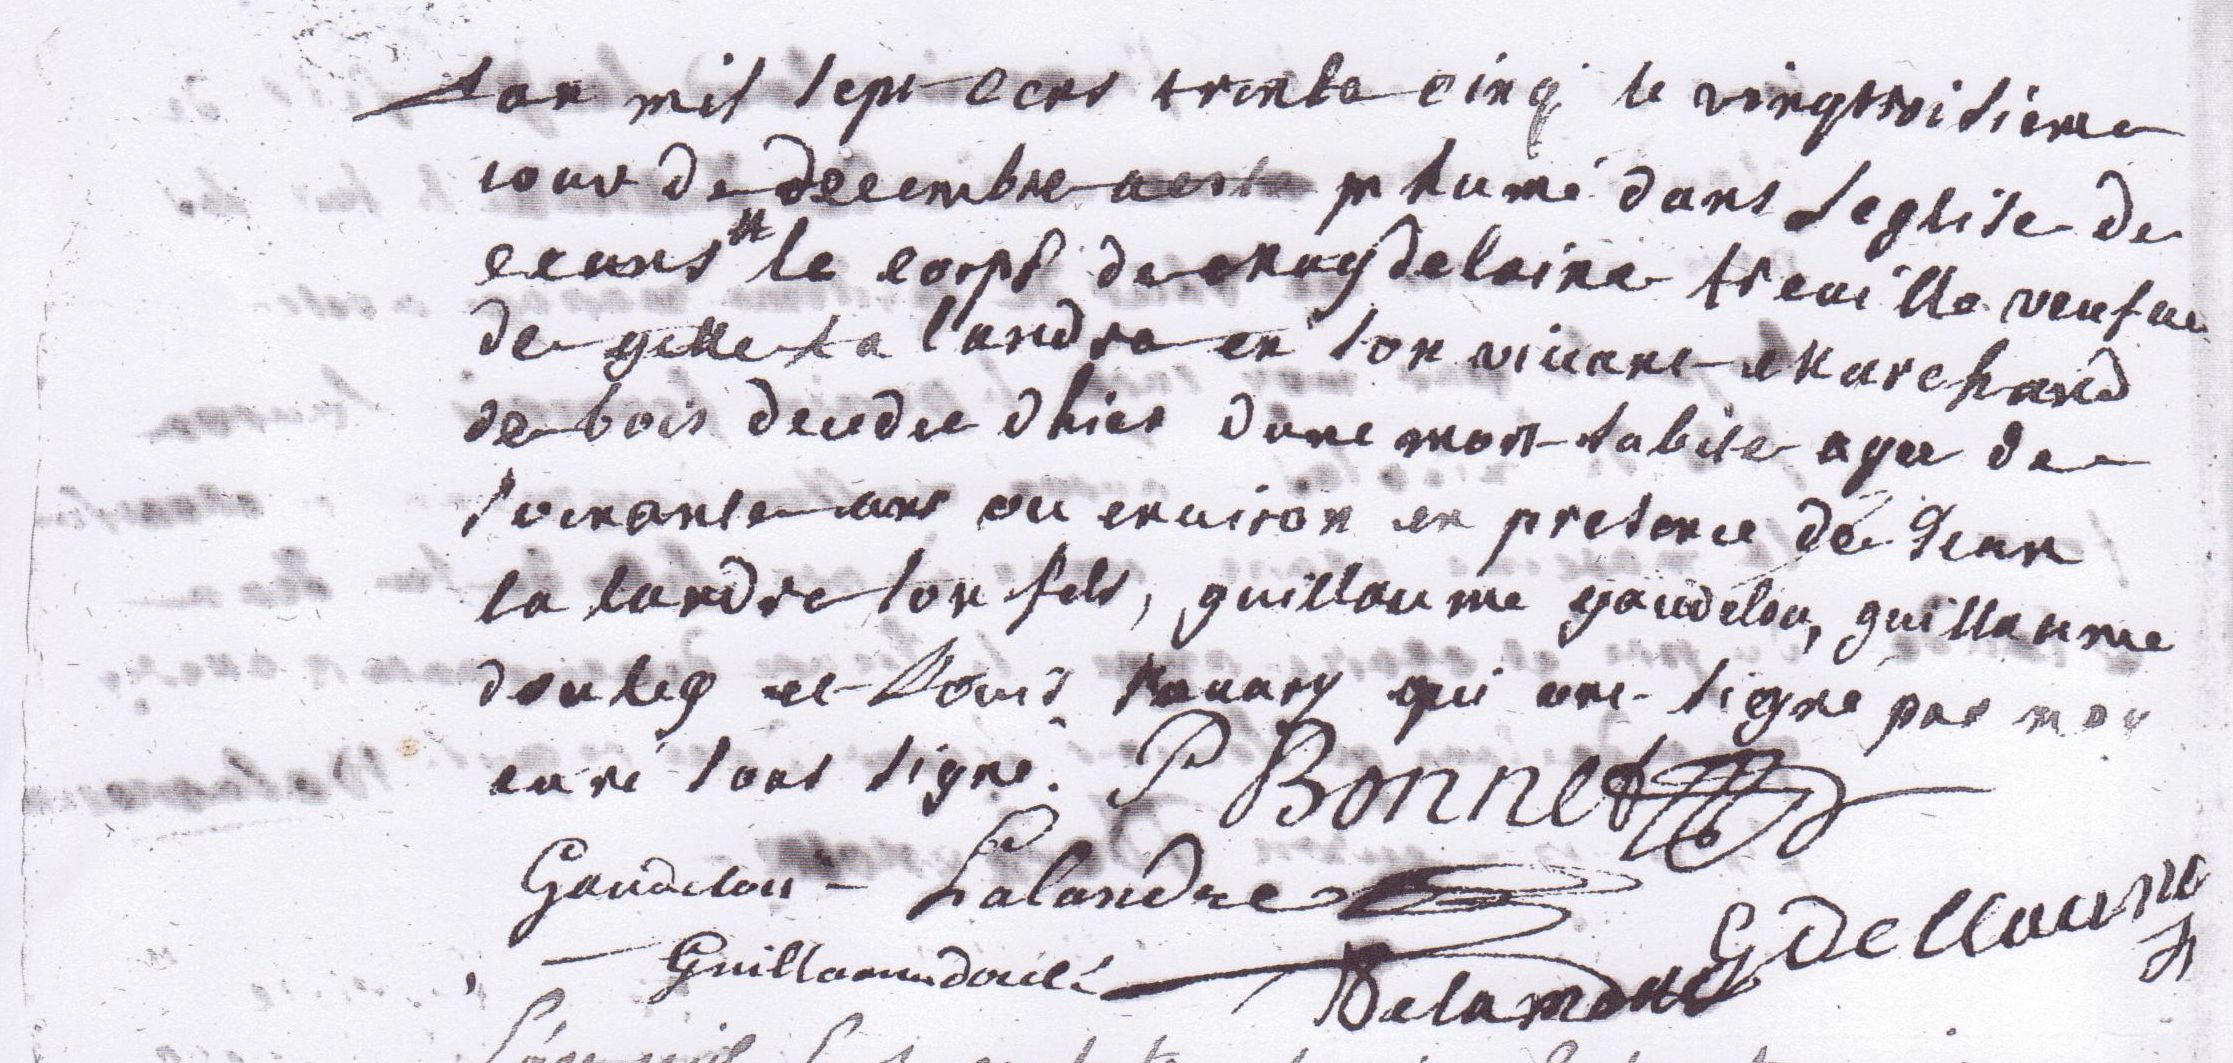 Lan mil sept cens trente cinq le vingttroisieme
iour de decembre a este inhumé dans leglise de
ceans le corps de magdelaine treuille veufue
de gille la landre en son viuant marchand
de bois decedee dhier dune mort subite agee de
soixante ans ou enuiron en presence de Jean
la landre son fils, guillaume gaudelou, guillaume
et Louis qui ont signe par moy
curé sous signé. P Bonnet
Gaudelou Lalandre
Guillaume G Dellaune